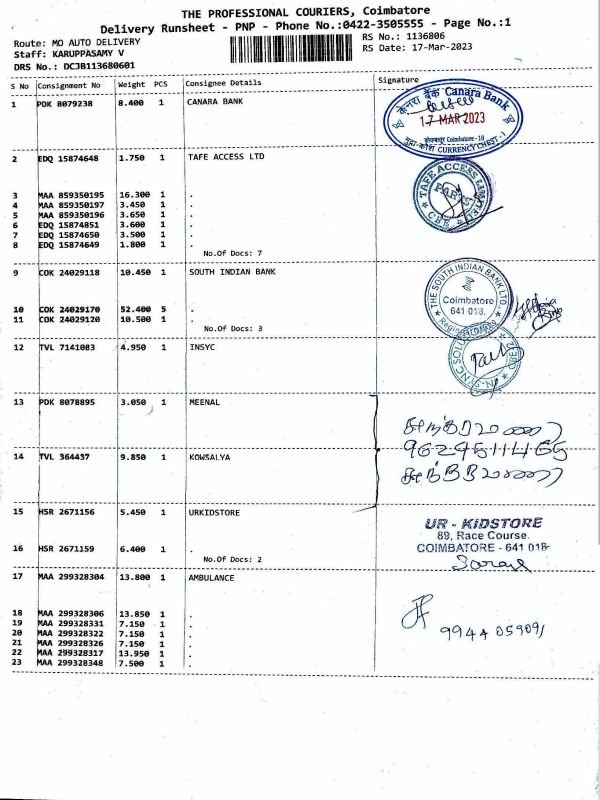 THE PROFESSIONAL COURIERS, Coimbatore
Delivery Runsheet - PNP - Phone No.:0422-3505555 - Page No.:1
Route: MO AUTO DELIVERY
Staff: KARUPPASAMY V
DRS No.: DCJB113680601
RS No.: 1136806
RS Date: 17-Mar-2023
S No Consignment No Weight PCS Consignee Details Signature
1 PDK 8079238 8.400 1 CANARA BANK
केनरा बैंक Canara Bank
17 MAR 2023
Coimbatore - 18
CURRENCY CHEST - 1
2 EDQ 15874648 1.750 1 TAFE ACCESS LTD
TAFE ACCESS LIMITED
PARTS
CBE
3 MAA 859350195 16.300 1 .
4 MAA 859350197 3.450 1 .
5 MAA 859350196 3.650 1 .
6 EDQ 15874851 3.600 1 .
7 EDQ 15874650 3.500 1 .
8 EDQ 15874649 1.800 1 .
No.Of Docs: 7
9 COK 24029118 10.450 1 SOUTH INDIAN BANK
THE SOUTH INDIAN BANK LTD.
Coimbatore
641 018.
10 COK 24029170 52.400 5 .
11 COK 24029120 10.500 1 .
No.Of Docs: 3
12 TVL 7141083 4.950 1 INSYC
13 PDK 8078895 3.050 1 MEENAL
9629511465
14 TVL 364437 9.850 1 KOWSALYA
15 HSR 2671156 5.450 1 URKIDSTORE
UR - KIDSTORE
89, Race Course.
COIMBATORE - 641 018
16 HSR 2671159 6.400 1 .
No.Of Docs: 2
17 MAA 299328304 13.800 1 AMBULANCE
18 MAA 299328306 13.850 1 .
19 MAA 299328331 7.150 1 .
20 MAA 299328322 7.150 1 .
21 MAA 299328326 7.150 1 .
22 MAA 299328317 13.950 1 .
23 MAA 299328348 7.500 1 .
9944059091